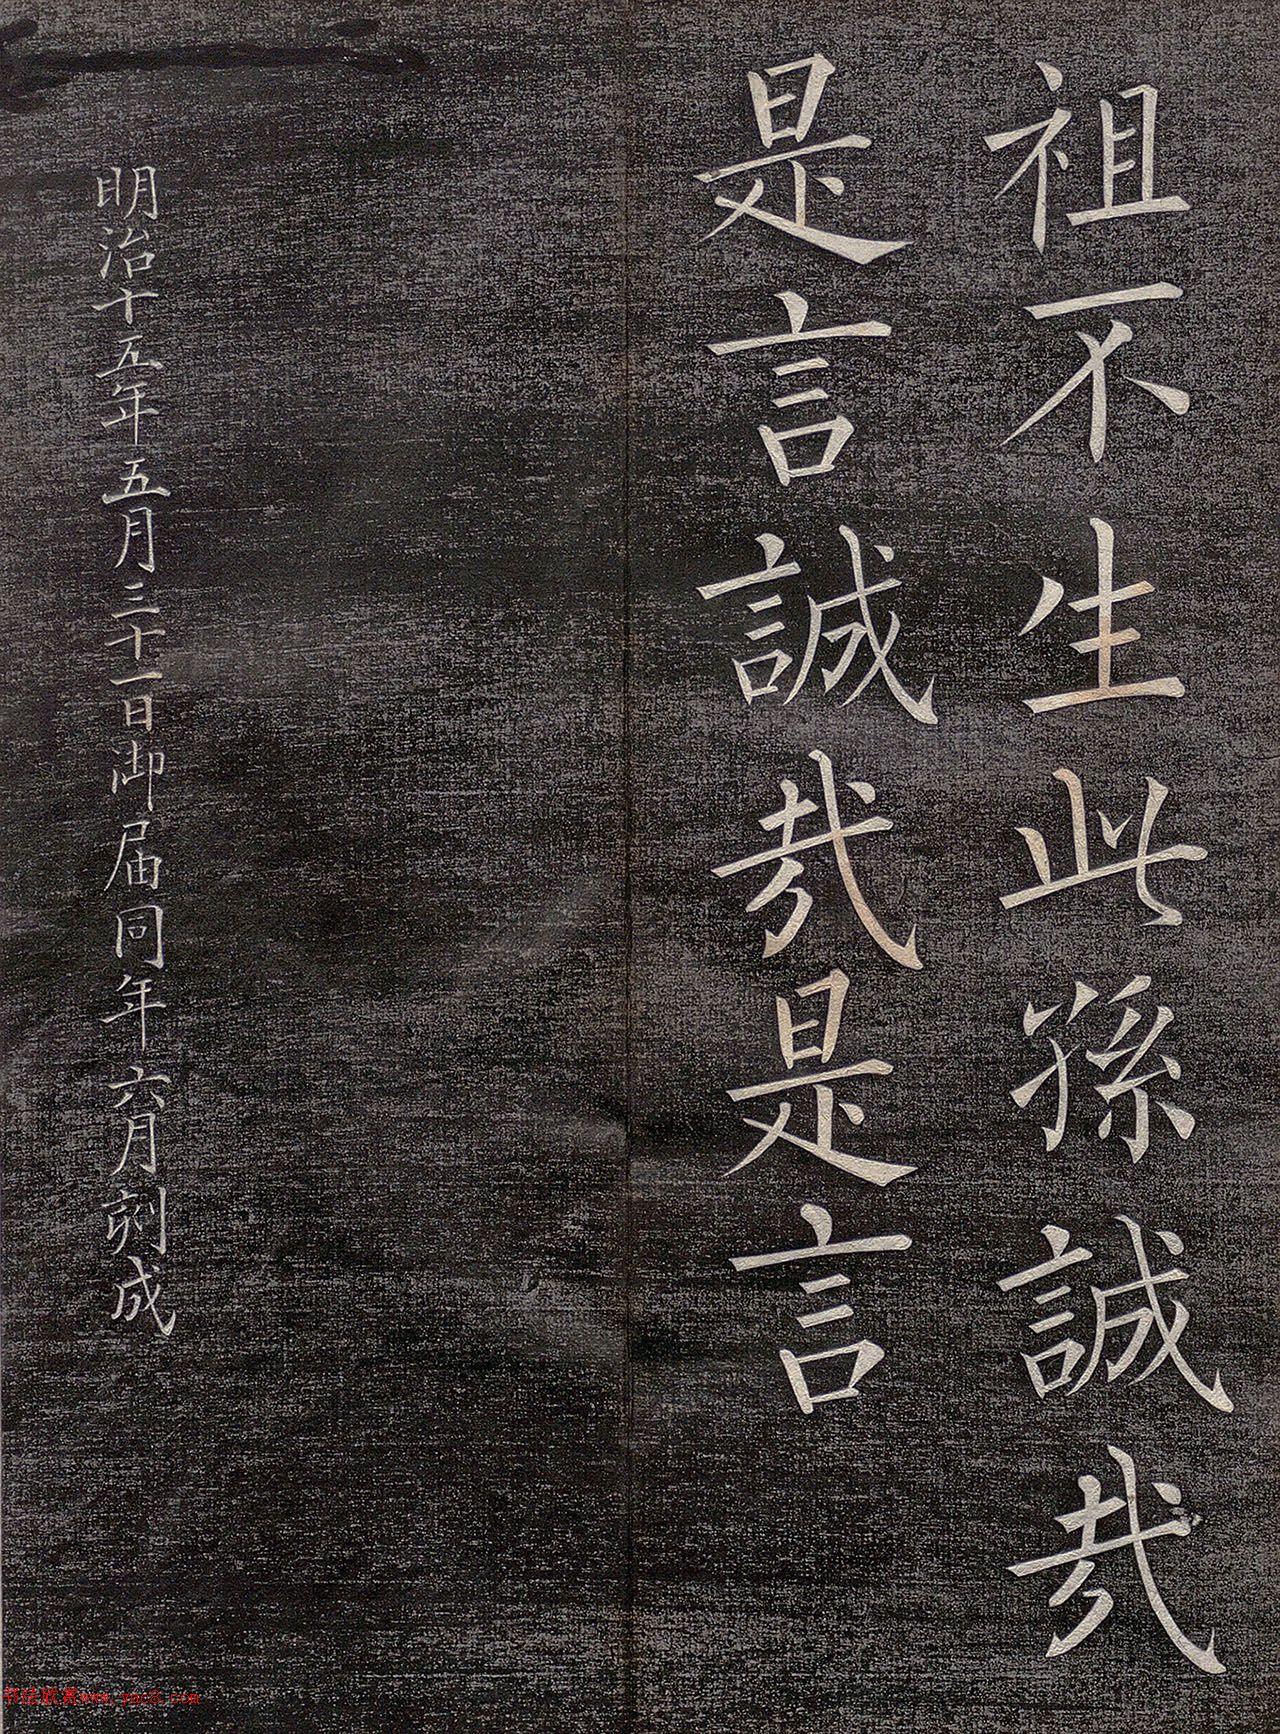 祖不生此孫誠哉
是言誠哉是言
明治十五年五月三十一日御届同年六月刻成
书法欣赏www.yac8.com